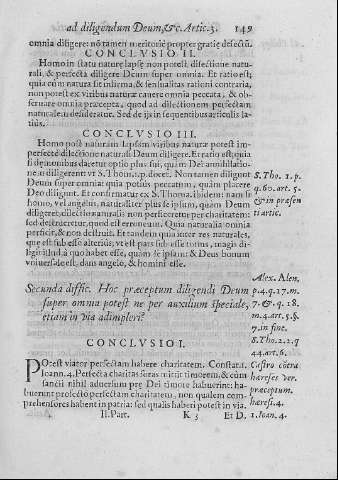 ad diligendum Deum, &c. Artic. 3. 149
omnia diligere: nō tamen meritoriè propter gratiæ defectū.
CONCLVSIO II.
Homo in statu naturæ lapsæ non potest, dilectione natu-
rali, & perfecta diligere Deum super omnia. Et ratio est;
quia cùm natura sit infirma, & sensualitas rationi contraria,
non potest ex viribus naturæ cauere omnia peccata, & ob-
seruare omnia præcepta, quod ad dilectionem perfectam
naturalem desideratur. Sed de ijs in sequentibus articulis la-
tiùs.
CONCLVSIO III.
Homo post naturam lapsam viribus naturæ potest im-
perfectè dilectione naturali Deum diligere. Et ratio est; quia
si dęmonibus daretur optio plus sui, quàm Dei annihilatio-
nem diligerent: vt S. Thom. 1. p. docet. Non tamen diligunt
Deum super omnia: quia potiùs peccatum, quàm placere
Deo diligunt. Et confirmatur ex S. Thoma. ibidem: nam si
homo, vel angelus, naturaliter plus se ipsum, quàm Deum
diligeret; dilectio naturalis non perficeretur per charitatem:
sed destrueretur, quod est erroneum. Quia naturalia omnia
perficit, & non destruit. Et tandem quia inter res naturales,
quę est sub esse alterius, vt est pars sub esse totius, magis di-
ligit illud à quo habet esse, quàm se ipsam: & Deus bonum
vniuersale est, dans angelo, & homini esse.
S. Tho. 1. p.
q. 60. art. 5.
& in præsen
ti artic.
Secunda diffic. Hoc præceptum diligendi Deum
super omnia potest ne per auxilium speciale,
etiam in via adimpleri?
Alex. Alen.
p. 4. q. 17. m.
7. & q. 28.
m. 4. art. 5. §
7. in fine.
S. Tho. 2. 2. q
44. art. 6.
CONCLVSIO I.
POtest viator perfectam habere charitatem. Constat. 1.
Ioann. 4. Perfecta charitas foras mittit timorem. & cùm
sancti nihil aduersum præ Dei timore habuerint: ha-
buerunt profectò perfectam charitatem, non qualem com-
prehensores habent in patria: sed qualis haberi potest in via.
Castro cōtra
hæreses ver.
præceptum.
hæres. 4.
1. Ioan. 4.
II. Part. K 3 Et D.